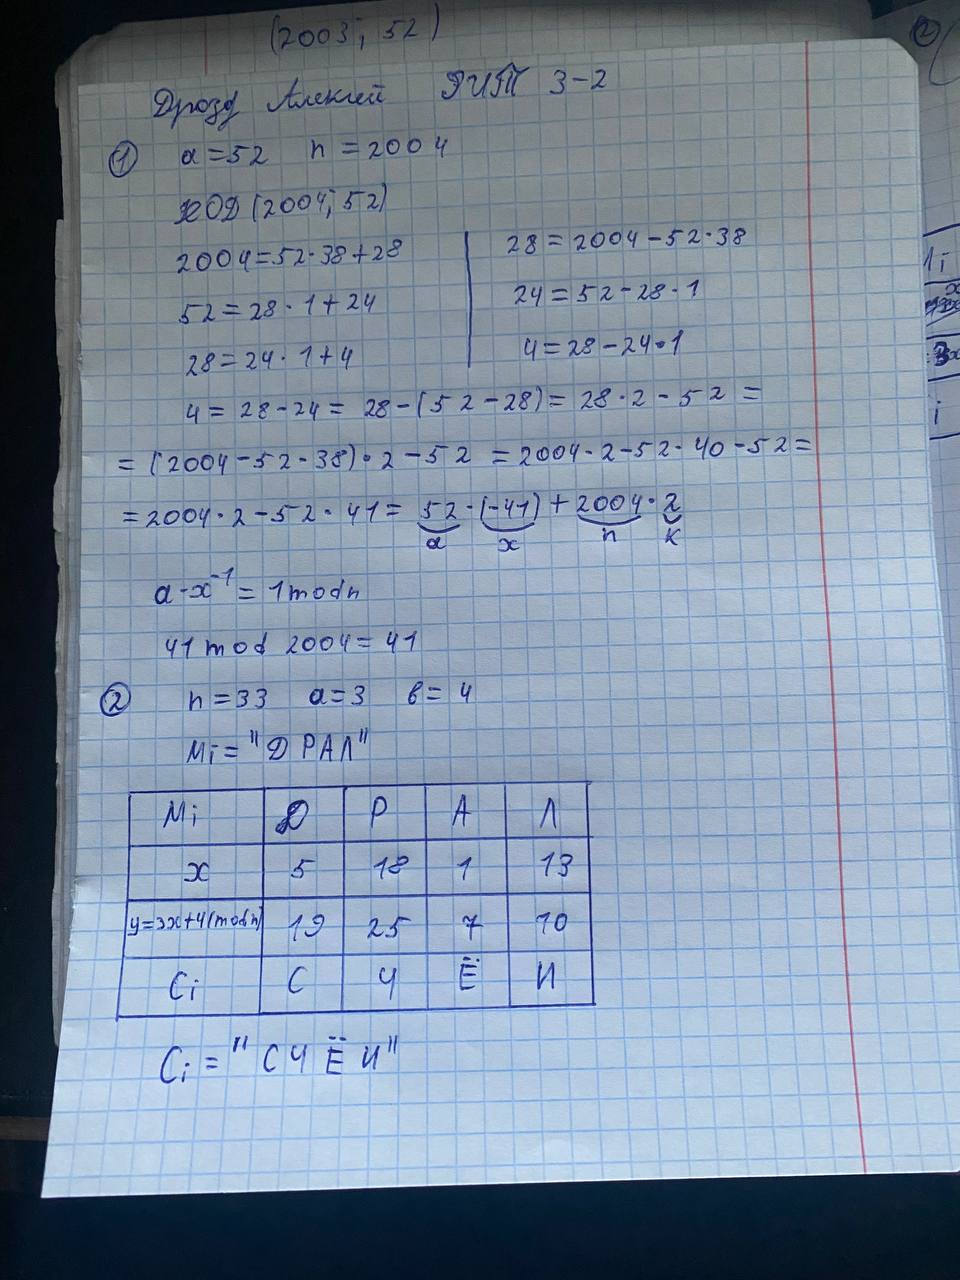 (2003; 52)
Дрозд Алексей РИТ 3-2
① a=52 n=2004
НОД (2004; 52)
2004=52·38+28
52=28·1+24
28=24·1+4
28=2004-52·38
24=52-28·1
4=28-24·1
4=28-24= 28-(52-28)= 28·2-52 =
= (2004-52·38)·2-52 =2004·2-52·40-52=
=2004·2-52·41= 52·(-41)+2004·2
a x n k
a·x⁻¹=1modn
41 mod 2004=41
② n=33 a=3 в=4
Mi= "ДРАЛ"
Mi Д Р А Л
x 5 18 1 13
y=3x+4(modn) 19 25 7 10
Ci С Ч Ё И
Ci = "СЧЁИ"
②